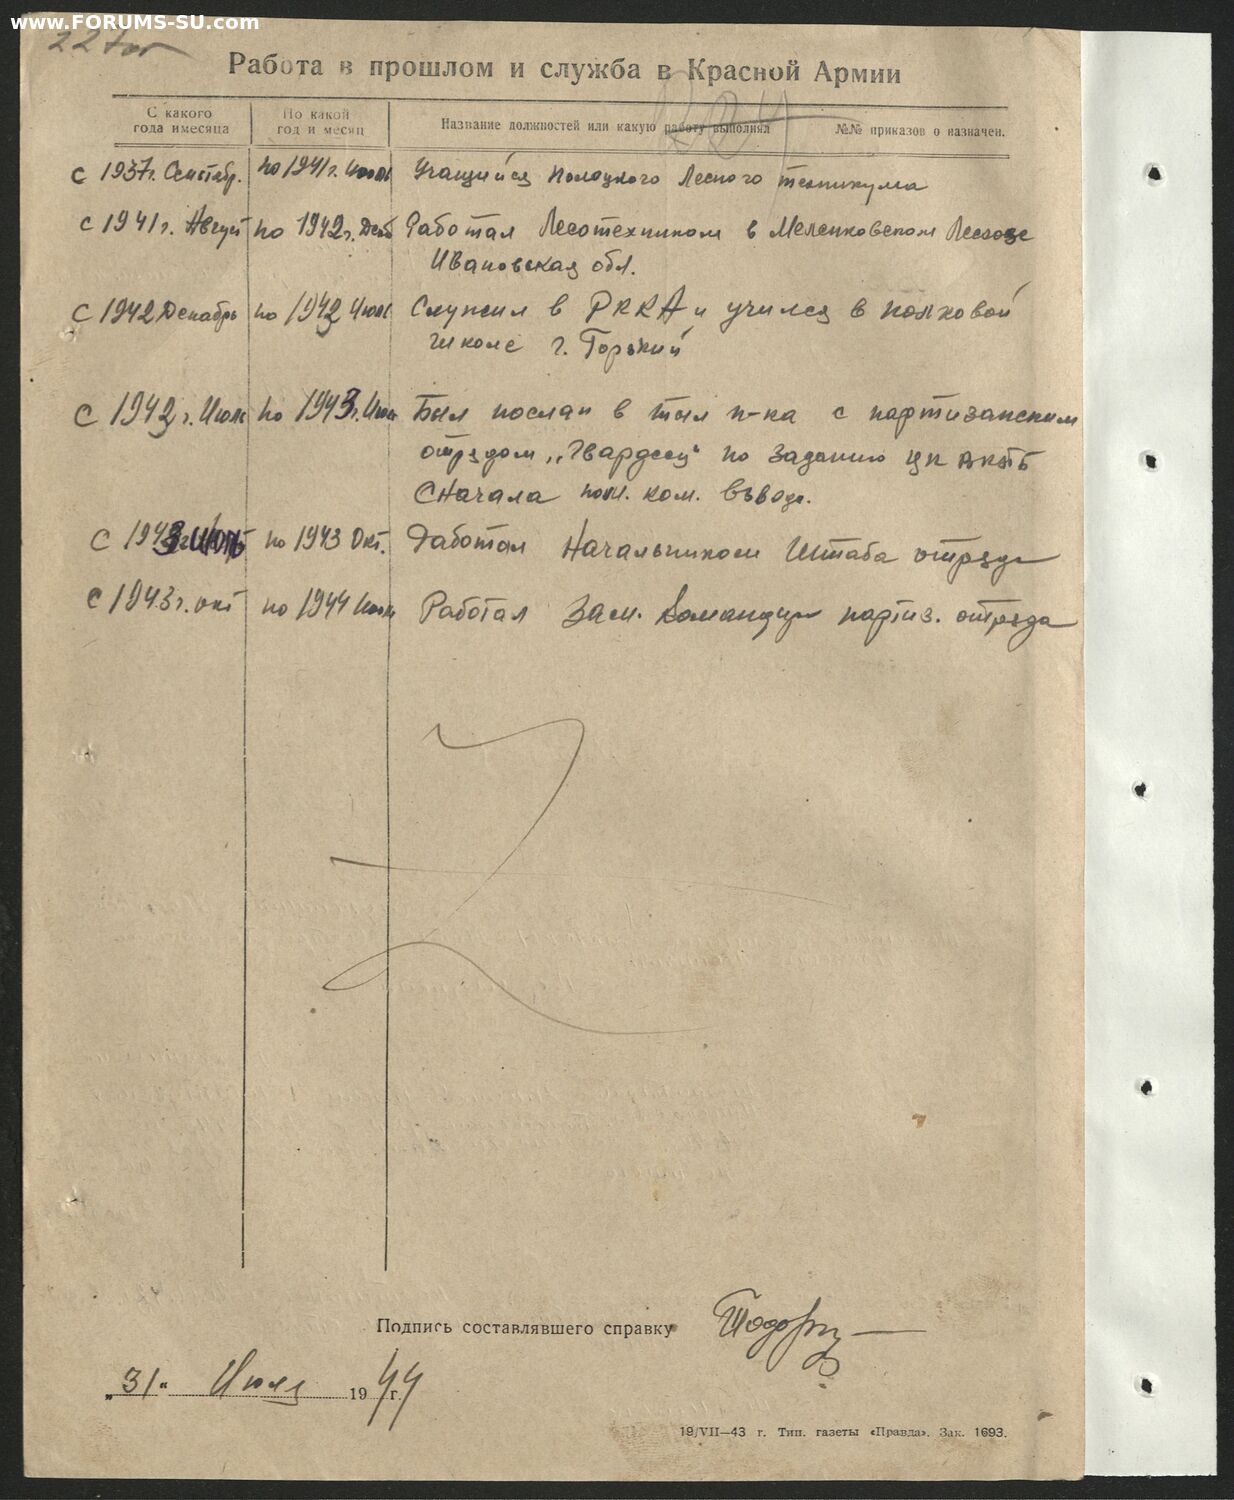 www.FORUMS-SU.com
22
Работа в прошлом и служба в Красной Армии
С какого года и месяца
По какой год и месяц
Название должностей или какую работу выполнял
№№ приказов о назначен.
с 1937г. Сентябр. по 1941г. Июль Учащийся Полоцкого Лесного техникума
с 1941г. Август по 1942г. Работал Лесотехником в Меленковском Лесхозе
Ивановская обл.
с 1942 Декабрь по 1942 Июль Служил в РККА и учился в полковой
школе г. Горький
с 1942г. Июль по 1943г. Июль Был послан в тыл п-ка с партизанским
отрядом „Гвардеец" по заданию ЦК
сначала пом. ком. взвода.
с 1943 Июль по 1943 Окт. Работал Начальником Штаба отряда
с 1943г. окт по 1944 Июль Работал Зам. Командира партиз. отряда
Подпись составлявшего справку
„31" Июля 1944 г.
19/VII—43 г. Тип. газеты «Правда». Зак. 1693.